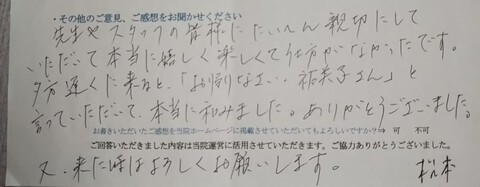 ・その他のご意見、ご感想をお聞かせください
先生やスタッフの皆様にたいへん親切にして
いただいて本当に嬉しく楽しくて仕方がなかったです。
夕方遅くに来ると、「お帰りなさい、祐美子さん」と
言っていただいて、本当に和みました。ありがとうございました。
お書きいただいたご感想を当院ホームページに掲載させていただいてもよろしいですか?⇒ 可 不可
ご回答いただきました内容は当院運営に活用させていただきます。ご協力ありがとうございました。
又、来た時はよろしくお願いします。 松本